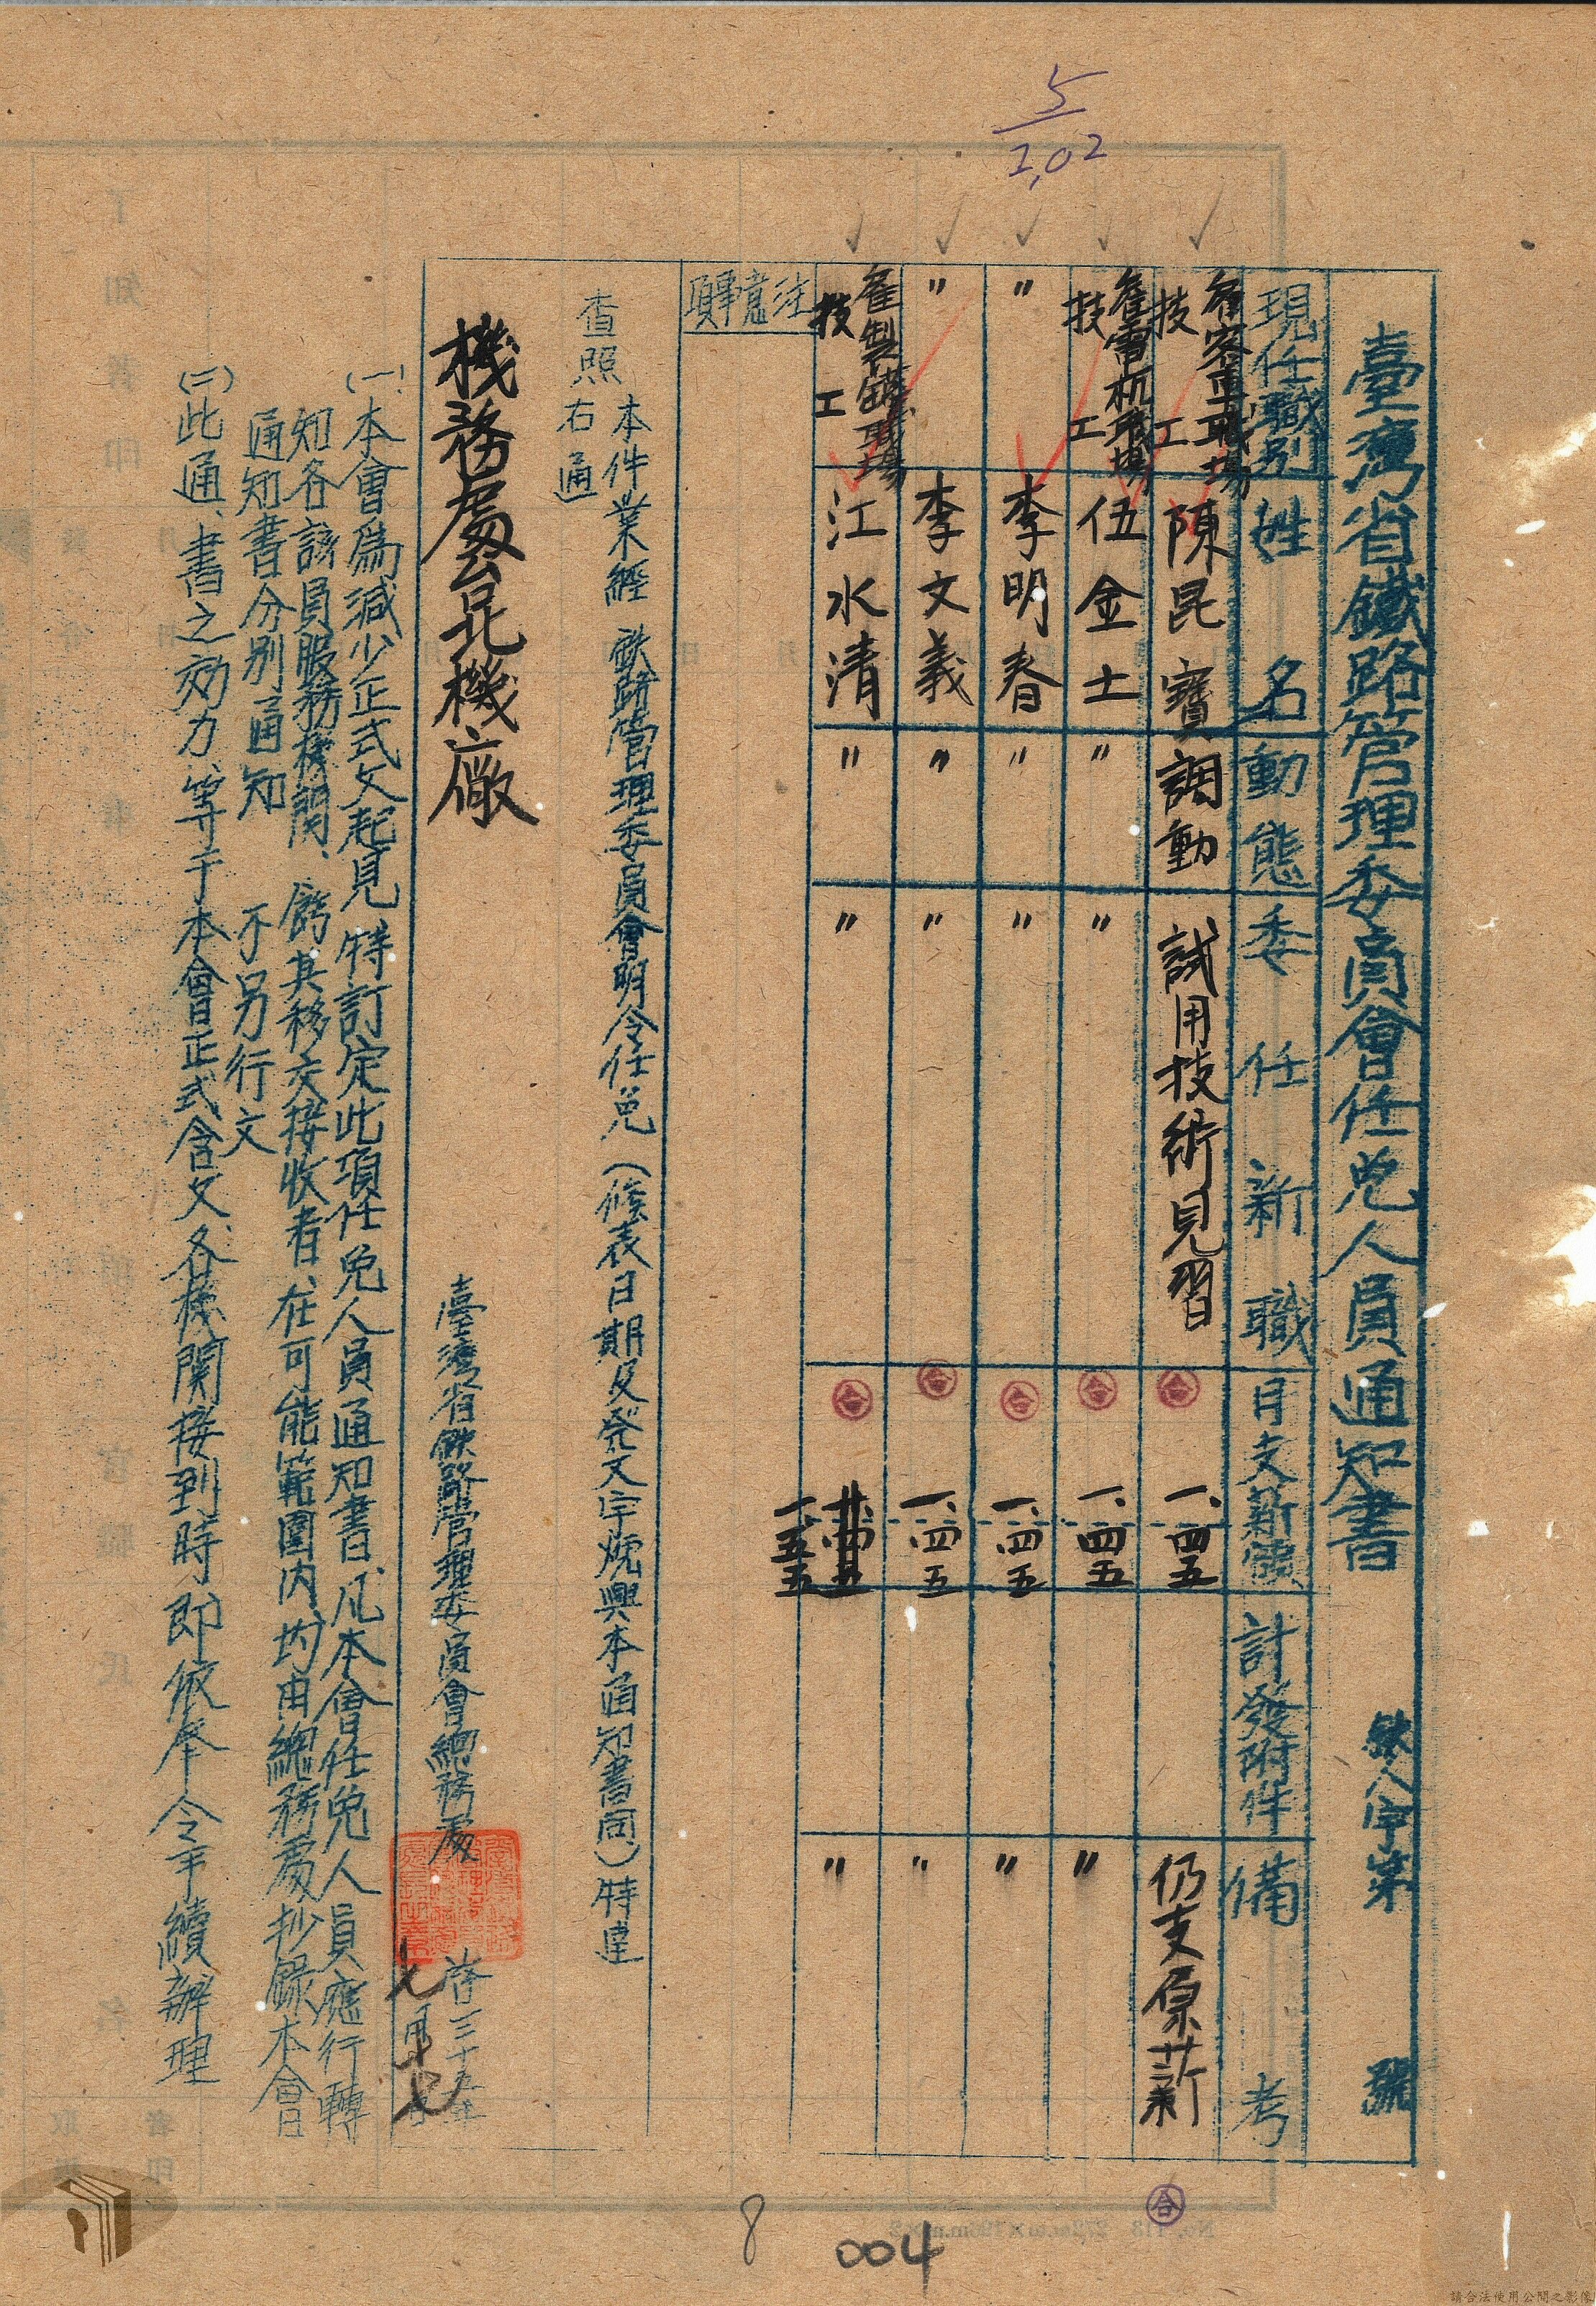 5
2,02
臺灣省鐵路管理委員會任免人員通知書 鉄人字第 號
現任職別 姓名 動態 委任新職 月支薪額 計發附件 備考
雇客車職場技工 陳昆寶 調動 試用技術見習 一、四五 仍支原薪
雇電机職場技工 伍金士 〃 〃 一、四五 〃
〃 李明春 〃 〃 一、四五 〃
〃 李文義 〃 〃 一、四五 〃
雇製罐職場技工 江水清 〃 〃 一、五五 〃
注意事項
本件業經 鉄路管理委員會明令任免(條表日期及發文字號與本通知書同)特達
查照 右通
機務處台北機廠
臺灣省鉄路管理委員會總務處 啓 三十五年七月
(一)本會爲減少正式文起見特訂定此項任免人員通知書、凡本會任免人員應行轉
知各該員服務機関、飭其移交接收者、在可能範圍内、均由總務處抄錄本會
通知書分別通知 不另行文
(二)此通、書之効力、等于本會正式含文各機関接到時即依奉令手續辦理
8
004
請合法使用公開之影像